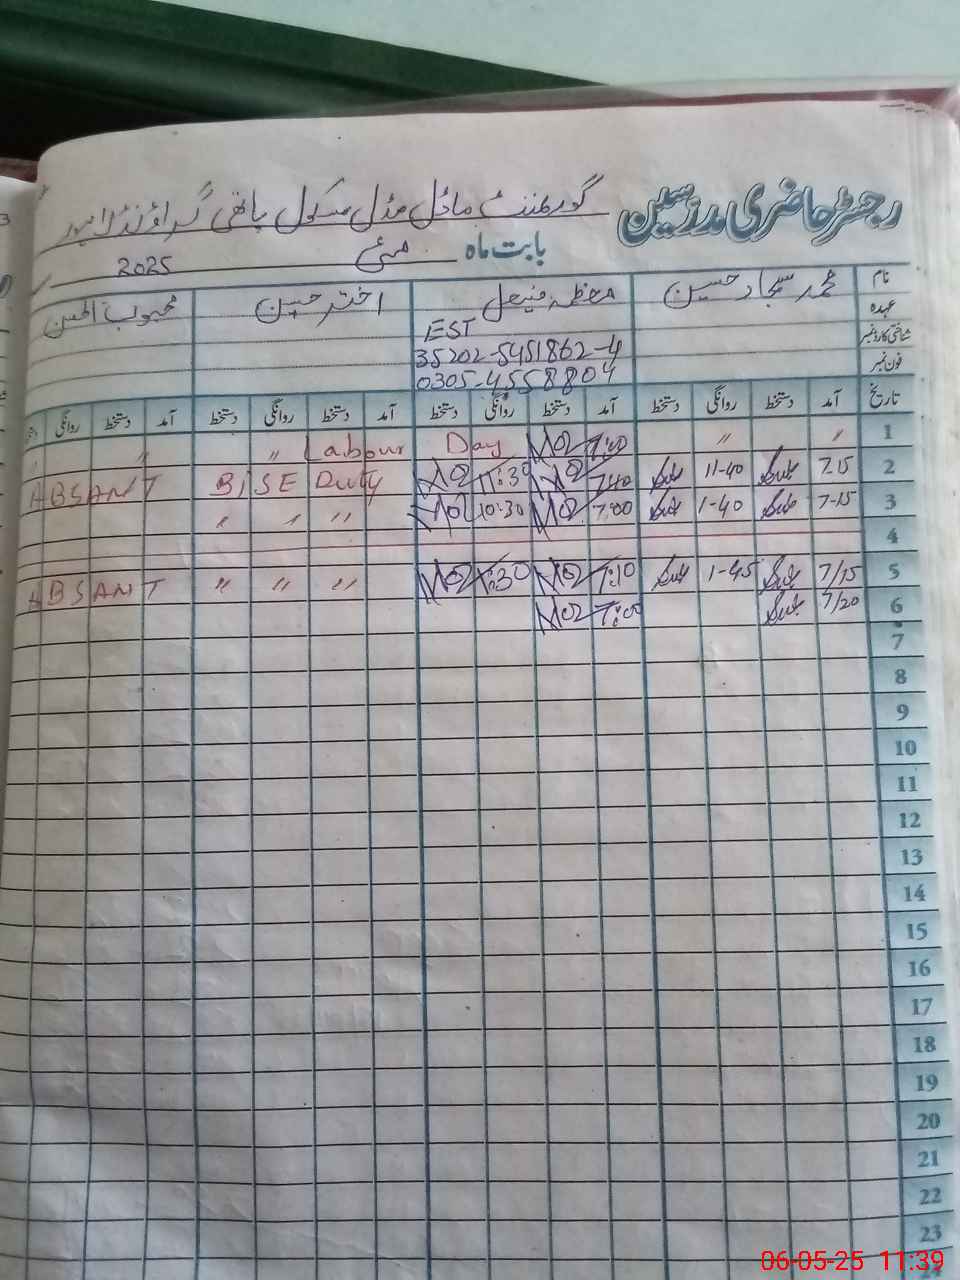 رجسٹر حاضری مدرسین گورنمنٹ ماڈل مڈل سکول ہاتھی گراؤنڈ لاہور
بابت ماہ مئی 2025
نام محمد سجاد حسین معظمہ اختر حسین محبوب الحسن
عہدہ EST
شناختی کارڈ نمبر 35202-5451862-4
فون نمبر 0305-4558804
تاریخ آمد دستخط روانگی دستخط آمد دستخط روانگی دستخط آمد دستخط روانگی دستخط آمد دستخط روانگی
1 " " 7:00 Labour Day " "
2 7.15 11-40 7:40 11:30 BISE Duty ABSANT
3 7-15 1-40 7:00 10:30 " " "
4
5 7/15 1-45 7:10 1:30 " " " ABSANT
6 7/20 7:00
7
8
9
10
11
12
13
14
15
16
17
18
19
20
21
22
23
06-05-25 11:39